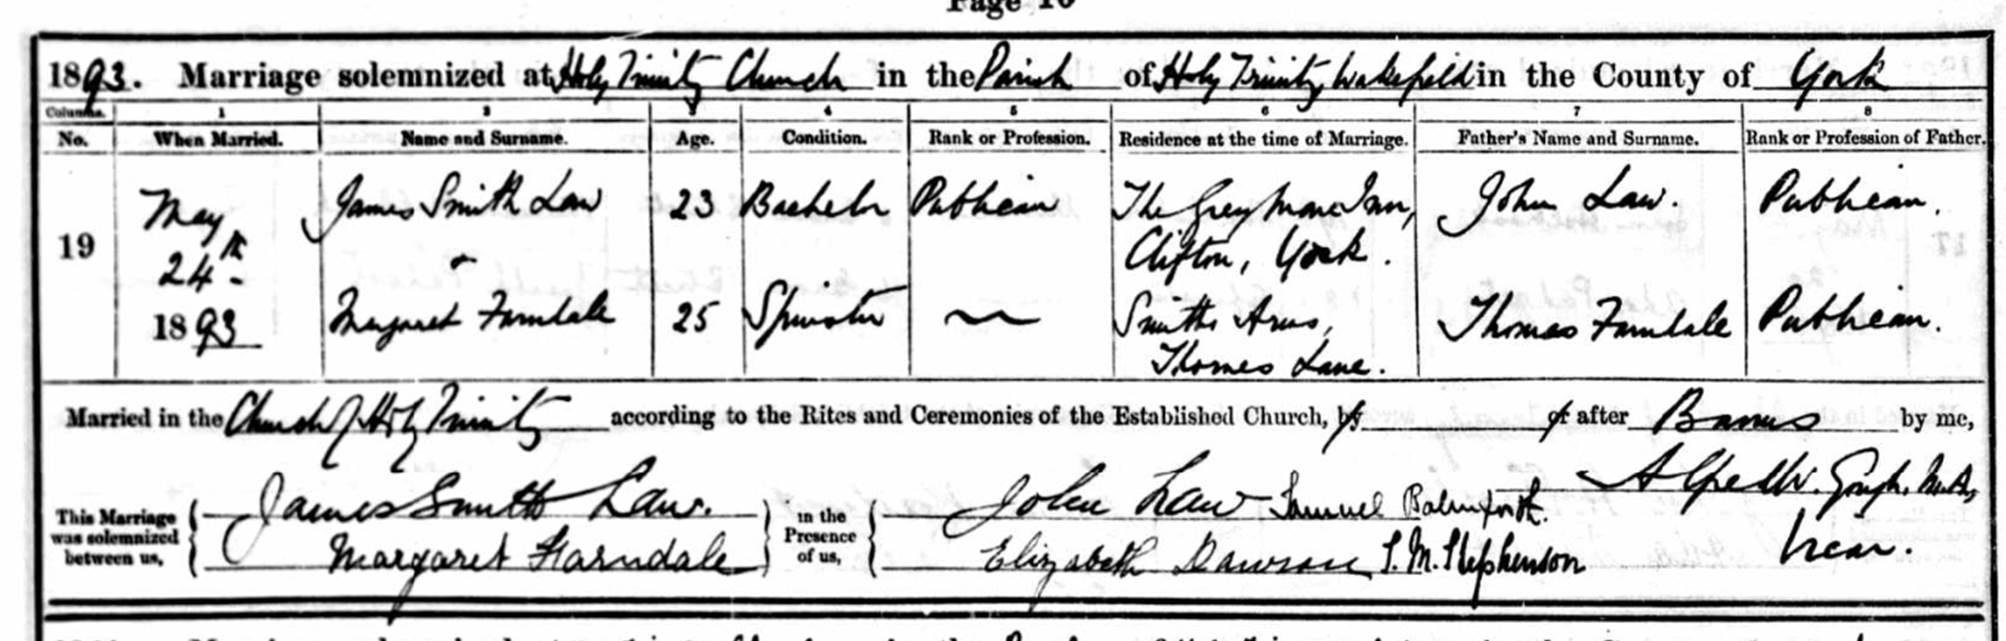 Page 10
1893. Marriage solemnized at Holy Trinity Church in the Parish of Holy Trinity, Wakefield in the County of York
Columns. 1 2 3 4 5 6 7 8
No. When Married. Name and Surname. Age. Condition. Rank or Profession. Residence at the time of Marriage. Father's Name and Surname. Rank or Profession of Father.
19 May 24th 1893 James Smith Law 23 Bachelor Publican The Grey Mare Inn, Clifton, York. John Law. Publican.
Margaret Farndale 25 Spinster ~ Smiths Arms, Thornes Lane. Thomas Farndale Publican.
Married in the Church of Holy Trinity according to the Rites and Ceremonies of the Established Church, by or after Banns by me,
This Marriage was solemnized between us, James Smith Law. Margaret Farndale in the Presence of us, John Law Samuel Balmforth. Elizabeth Dawson S. M. Stephenson
Alfred W. Gough. M.A, Vicar.